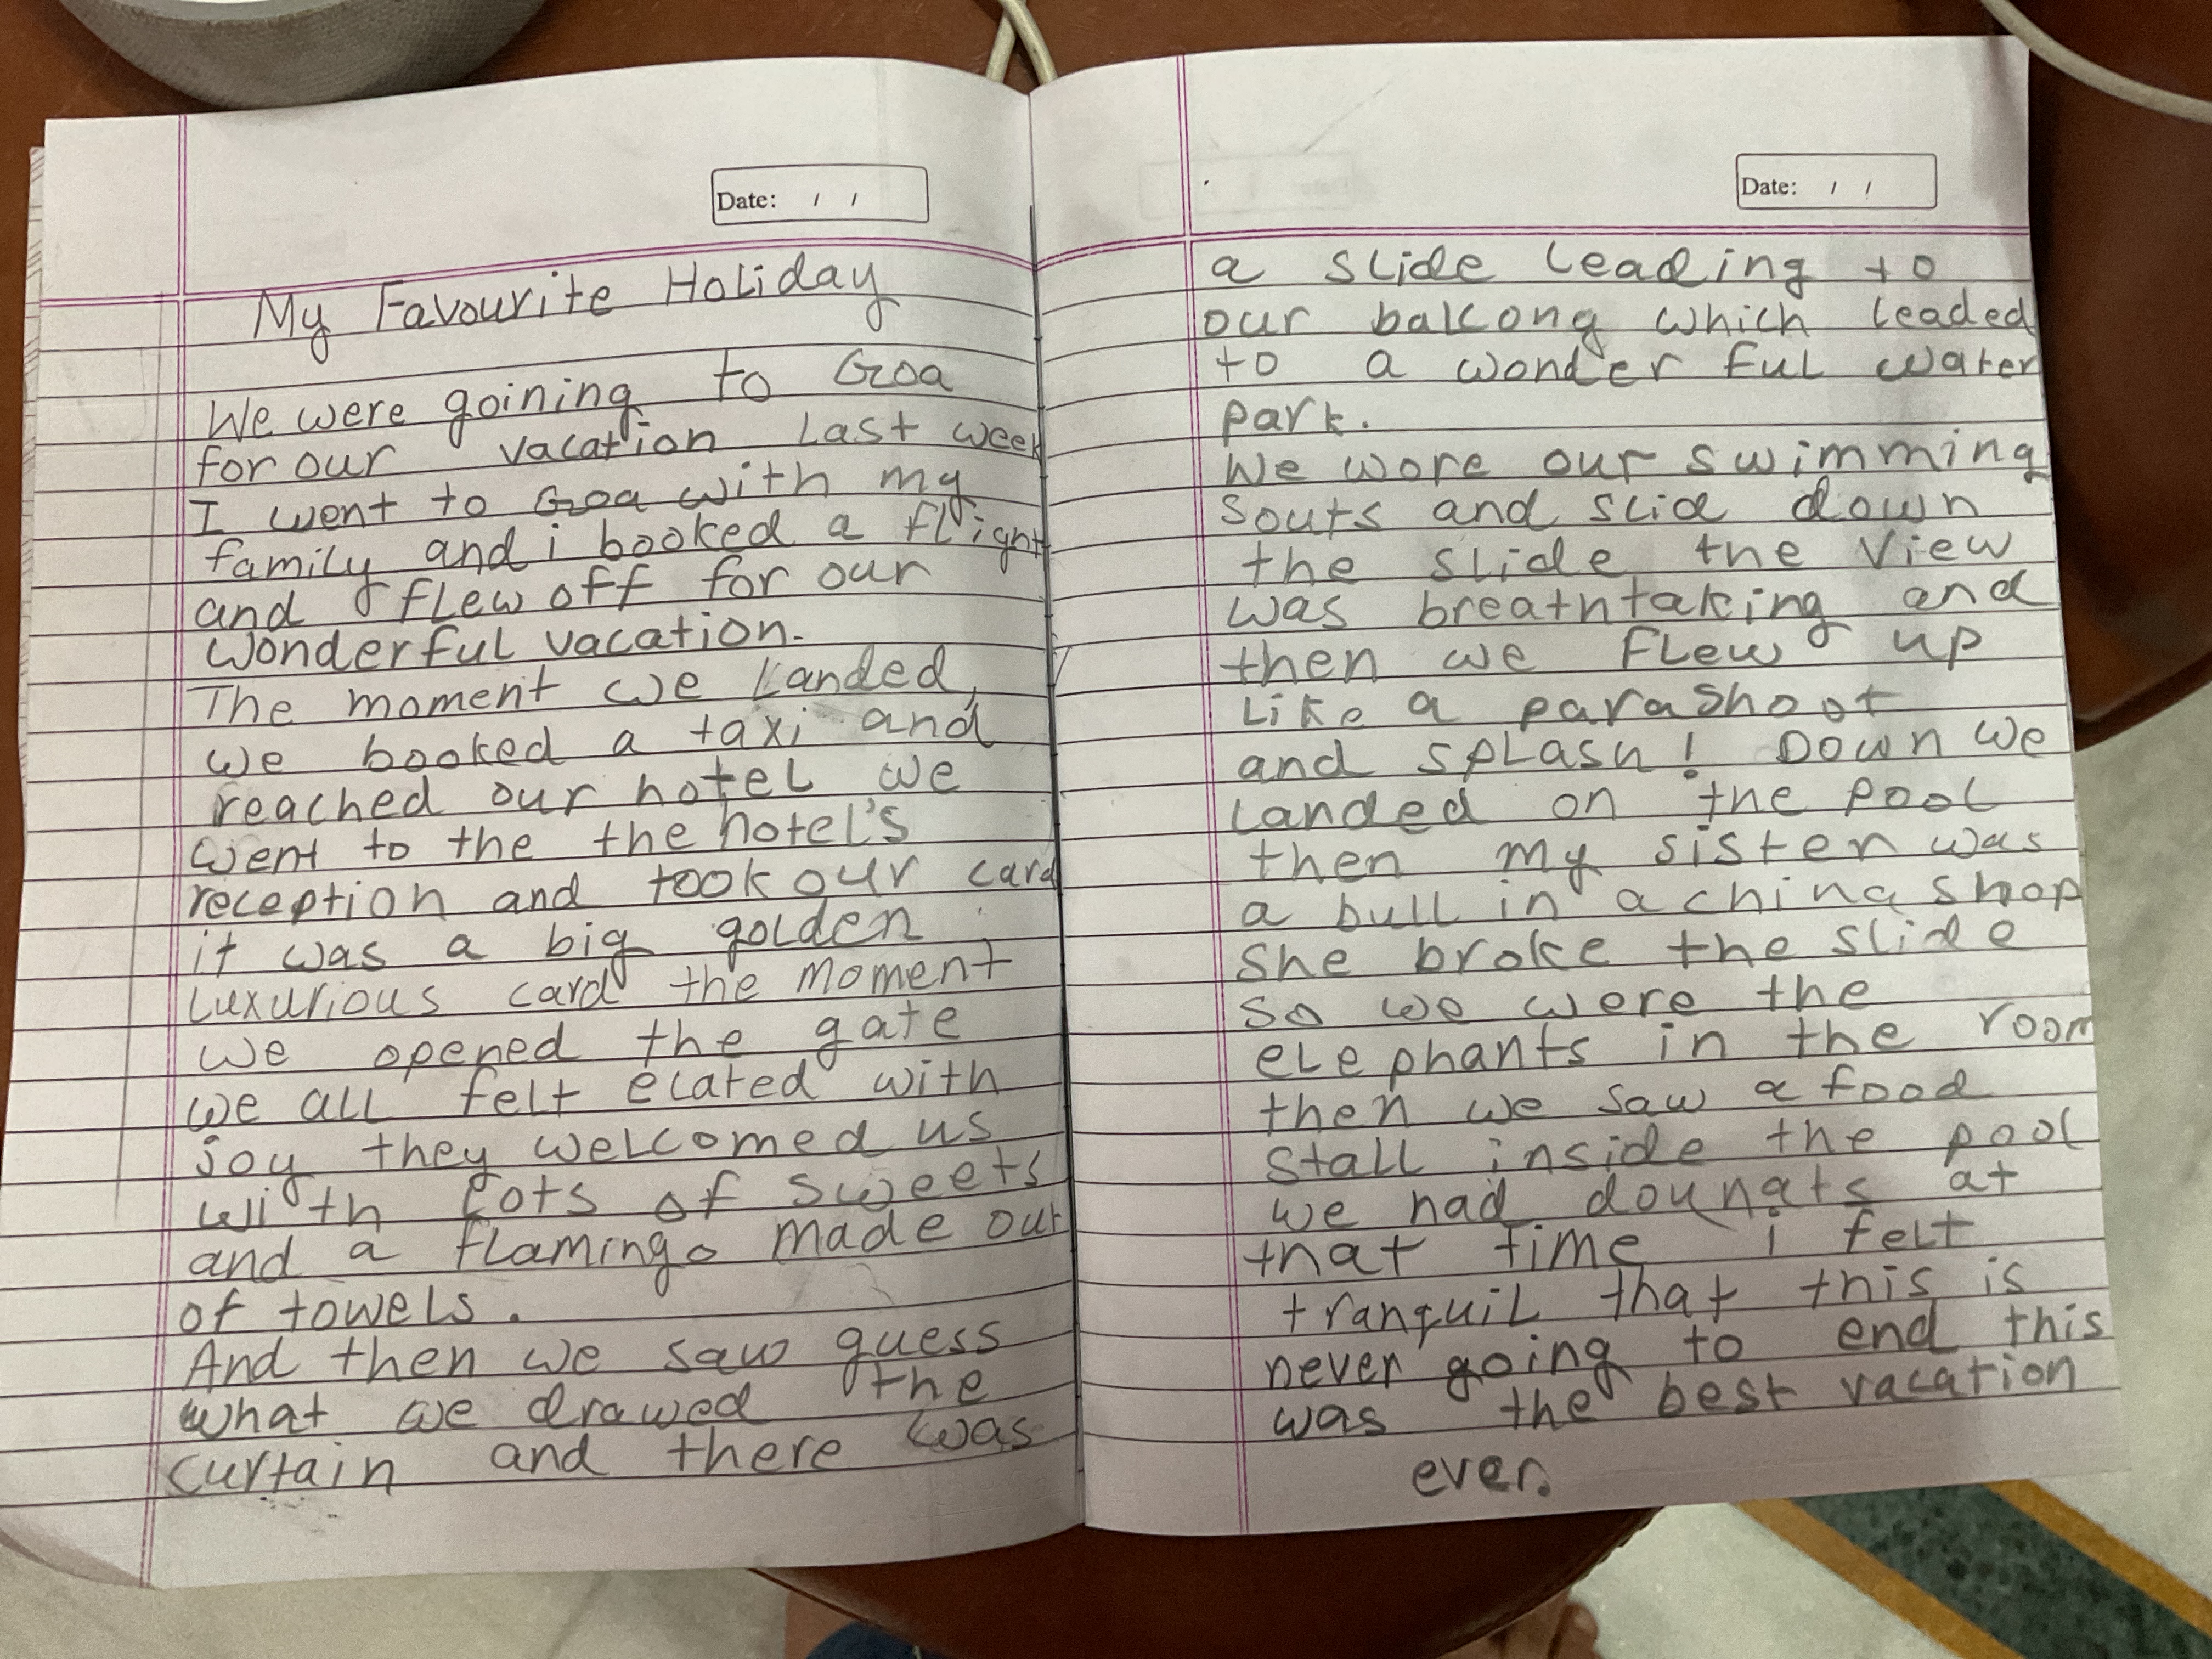 Date: / /
My Favourite Holiday
We were goining to Goa
for our vacation last week
I went to Goa with my
family and i booked a flight
and flew off for our
wonderful vacation.
The moment we landed,
we booked a taxi and
reached our hotel we
went to the the hotel's
reception and took our card
it was a big golden
luxurious card the moment
we opened the gate
we all felt elated with
joy they welcomed us
with lots of sweets
and a flamingo made out
of towels.
And then we saw guess
what we drawed the
curtain and there was
Date: / /
a slide leading to
our balcony which leaded
to a wonder ful water
park.
We wore our swimming
souts and slid down
the slide the view
was breathtaking and
then we flew up
like a parashoot
and splash! Down we
landed on the pool
then my sister was
a bull in a china shop
she broke the slide
so we were the
elephants in the room
then we saw a food
stall inside the pool
we had dounats at
that time i felt
tranquil that this is
never going to end this
was the best vacation
ever.